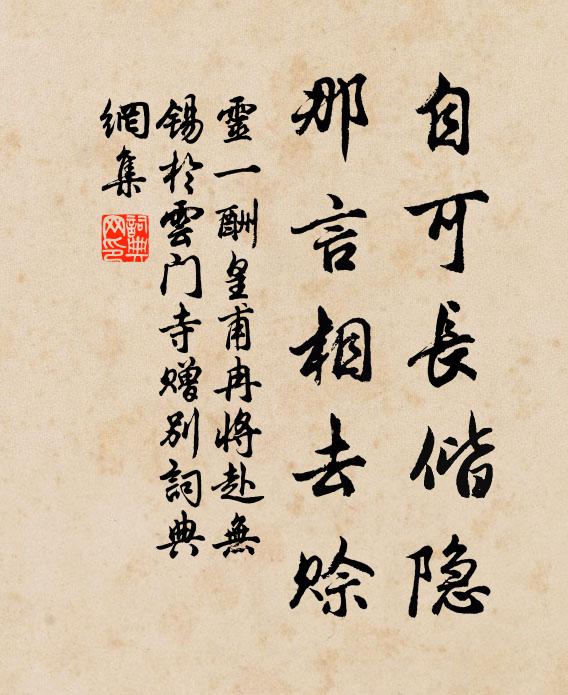 自可長偕隐
那言相去赊
靈一酬皇甫冉將赴無
錫於雲门寺赠别詞典
網集
詞典网印